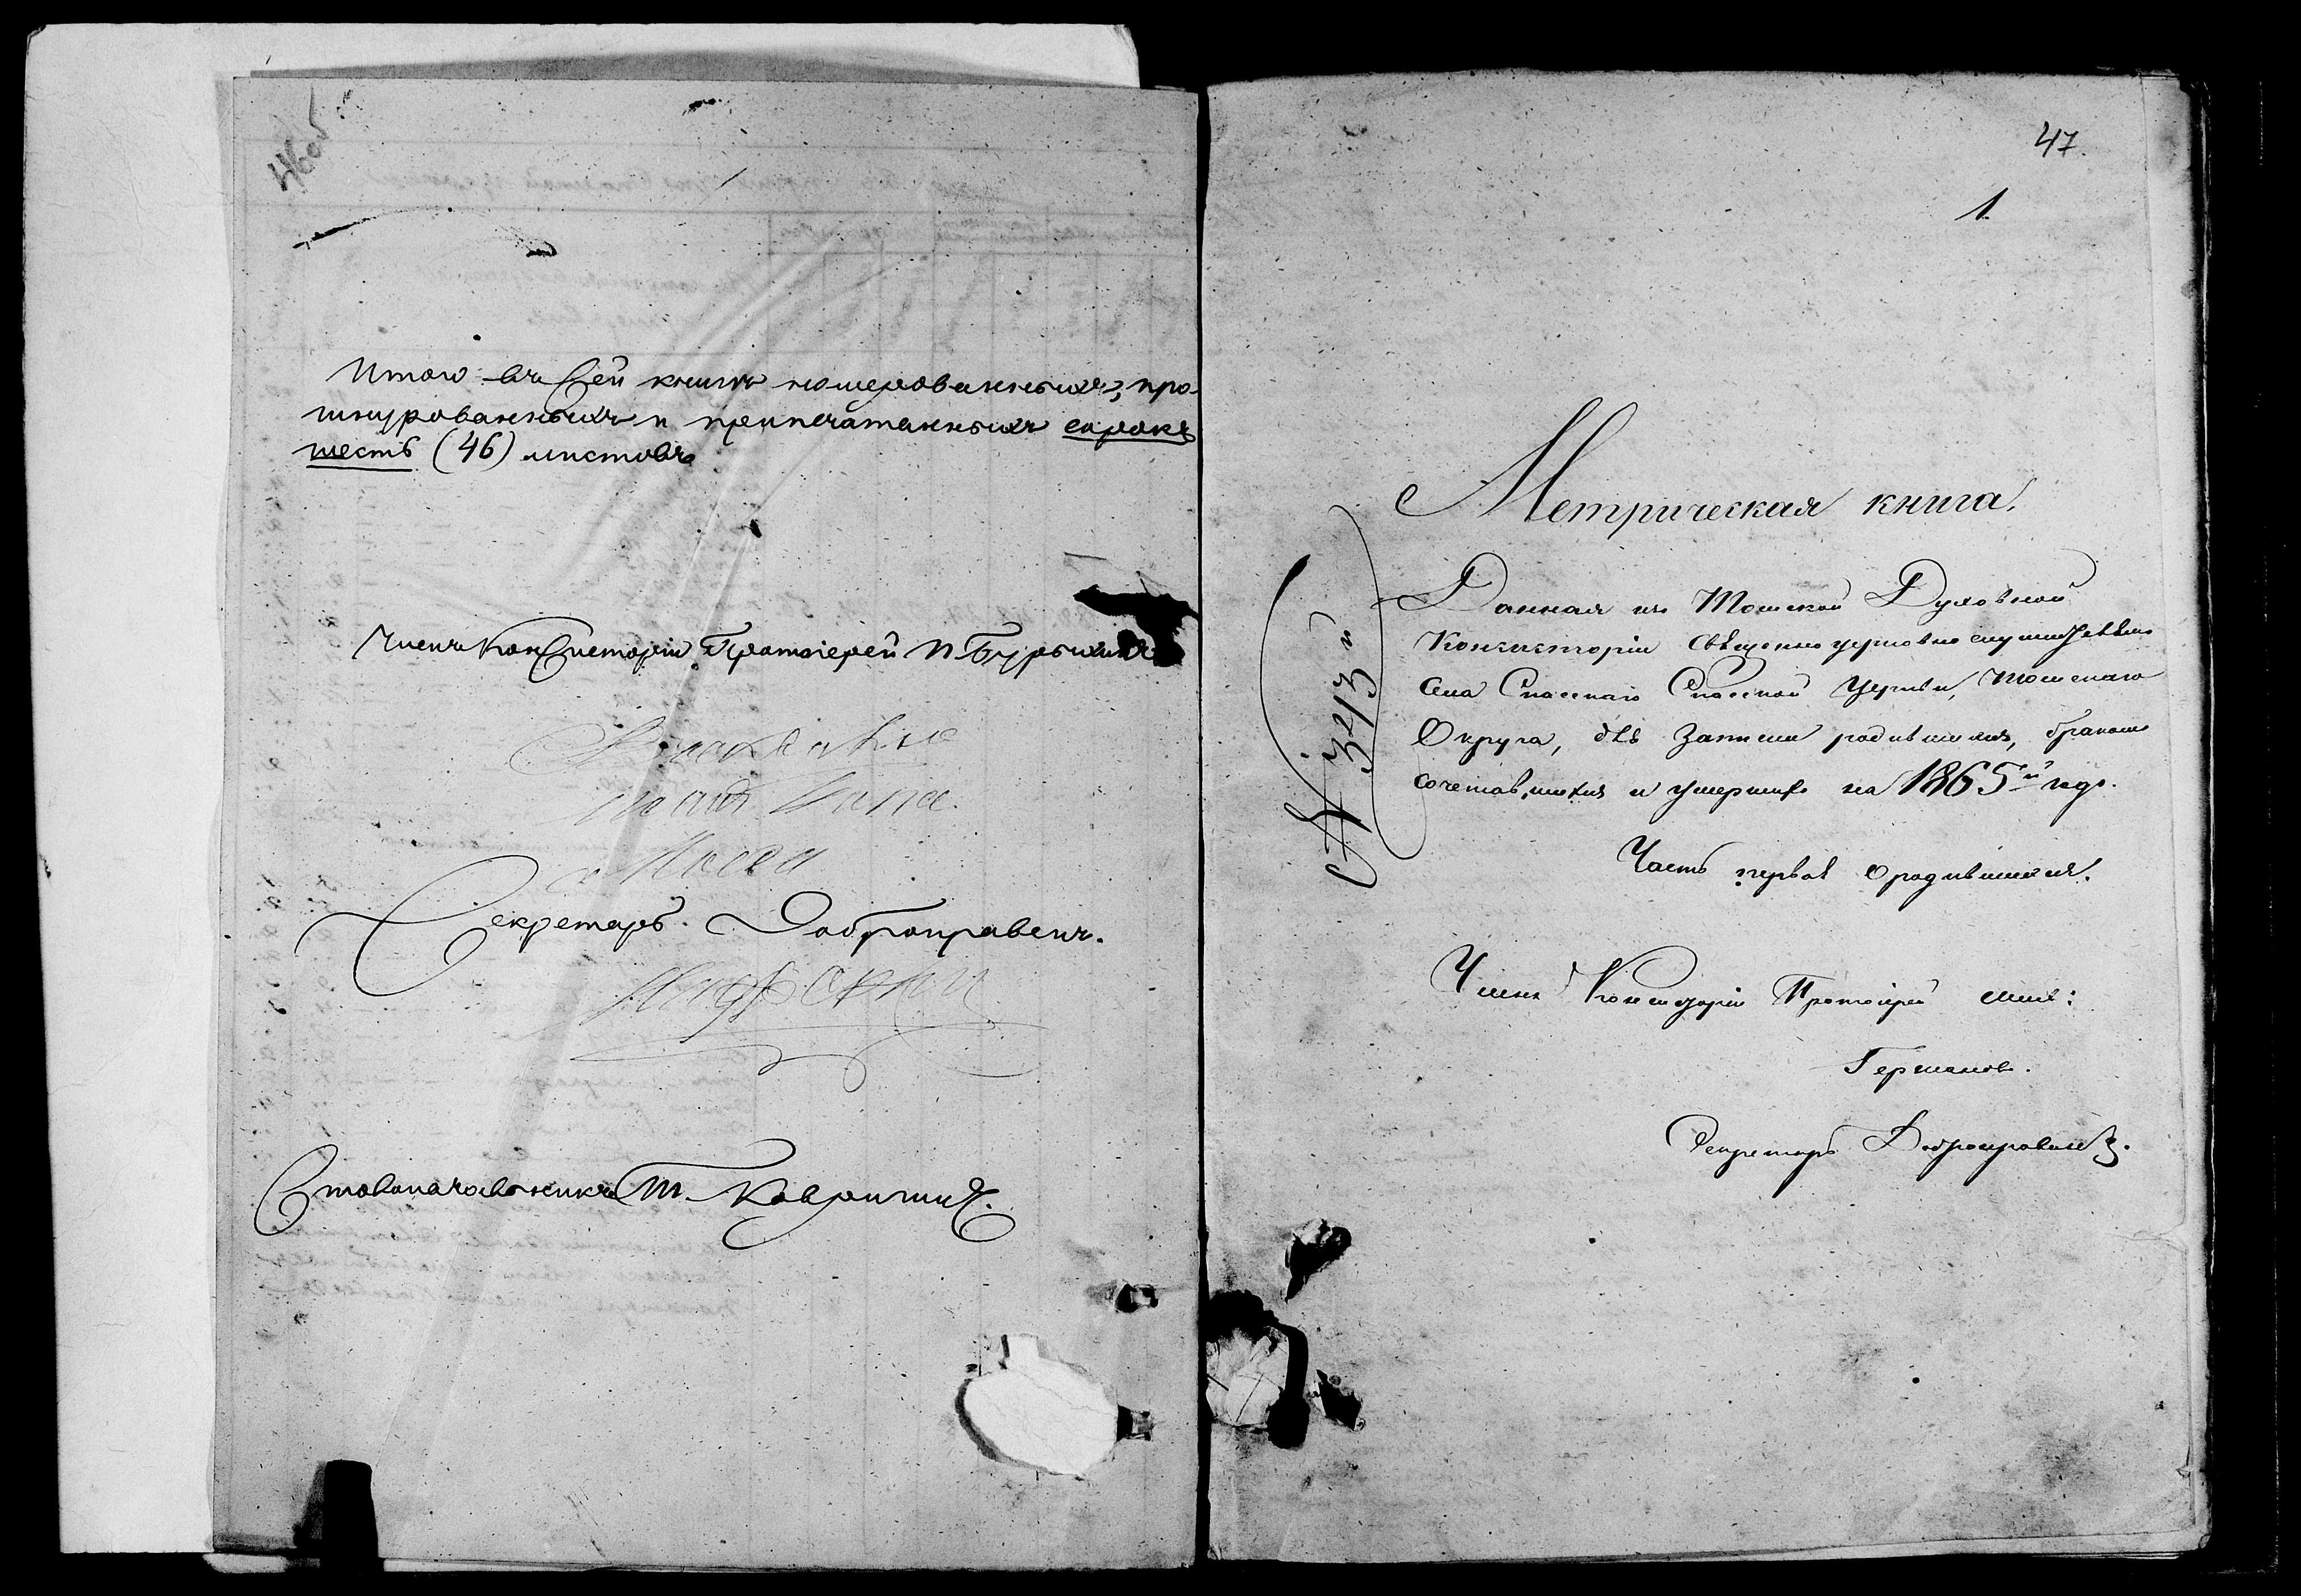 46об
Итого въ сей книгѣ номерованныхъ, про-
шнурованныхъ и припечатанныхъ сорокъ
шесть (46) листовъ
Членъ Консисторіи Протоіерей П.
Секретарь Добронравинъ.
Столоначальникъ
47.
1
Метрическая книга,
№ 343й
Данная изъ Томской Духовной
Консисторіи Священно церковно служителямъ
села Спасскаго Спасской Церкви, Томскаго
Округа, для записи родившихся, бракомъ
сочетавшихся и умершихъ на 1865й годъ.
Часть первая о родившихся.
Членъ Консисторіи Протоіерей
Германовъ.
Секретарь Добронравинъ.